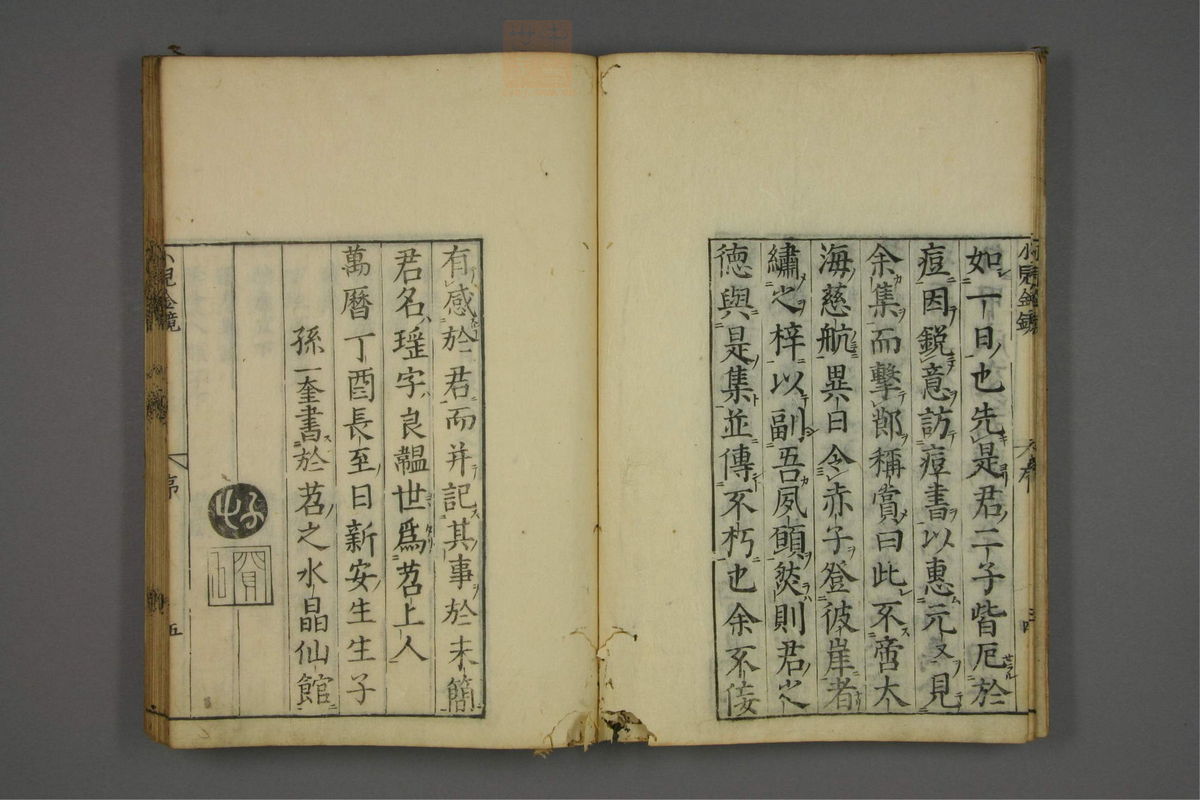 如一日也先是君二子皆厄於
痘因鋭意訪痘書以惠元又見
余集而擊節稱賞曰此不啻大
海慈航異日令赤子登彼崖者
繡之梓以副吾夙願然則君之
德與是集並傳不朽也余不佞
有感於君而并記其事於末簡
君名瑤字良韞世爲苕上人
萬曆丁酉長至日新安生生子
孫一奎書於苕之水晶仙館
序
五